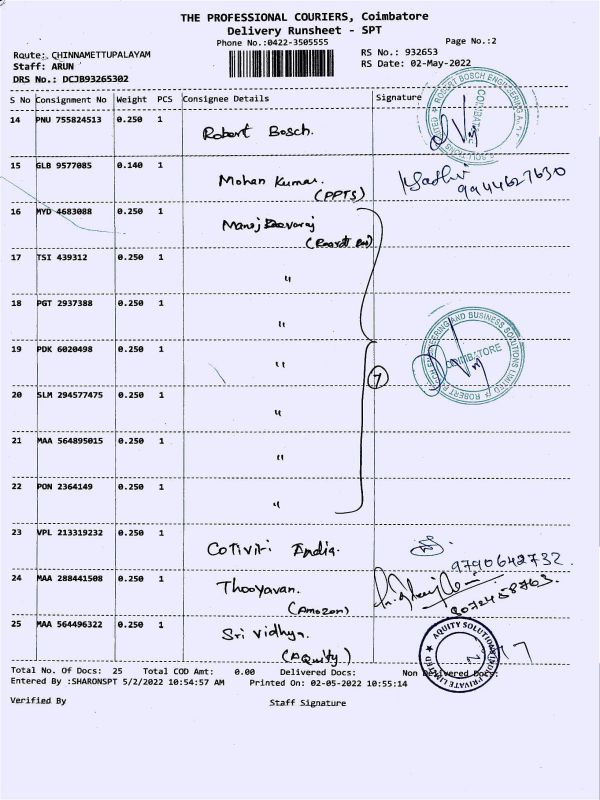 THE PROFESSIONAL COURIERS, Coimbatore
Delivery Runsheet - SPT
Phone No.:0422-3505555
Page No.:2
Route: CHINNAMETTUPALAYAM
RS No.: 932653
Staff: ARUN
RS Date: 02-May-2022
DRS No.: DCJB93265302
S No Consignment No Weight PCS Consignee Details Signature
14 PNU 755824513 0.250 1 Robert Bosch.
ROBERT BOSCH ENGINEERING SOLUTIONS LIMITED
COIMBATORE
15 GLB 9577085 0.140 1 Mohan Kumar.
(PPTS)
9944627630
16 MYD 4683088 0.250 1 Manoj Devaraj
17 TSI 439312 0.250 1 "
18 PGT 2937388 0.250 1 "
19 PDK 6020498 0.250 1 "
7
ENGINEERING AND BUSINESS SOLUTIONS LIMITED
COIMBATORE
20 SLM 294577475 0.250 1 "
21 MAA 564895015 0.250 1 "
22 PON 2364149 0.250 1 "
23 VPL 213319232 0.250 1 Cotiviti India.
9790642732.
24 MAA 288441508 0.250 1 Thooyavan.
(Amazon)
8072458763.
25 MAA 564496322 0.250 1 Sri Vidhya.
(AQuity)
AQUITY SOLUTIONS INDIA PRIVATE LIMITED
Total No. Of Docs: 25 Total COD Amt: 0.00 Delivered Docs: Non Delivered Docs:
Entered By :SHARONSPT 5/2/2022 10:54:57 AM Printed On: 02-05-2022 10:55:14
Verified By Staff Signature